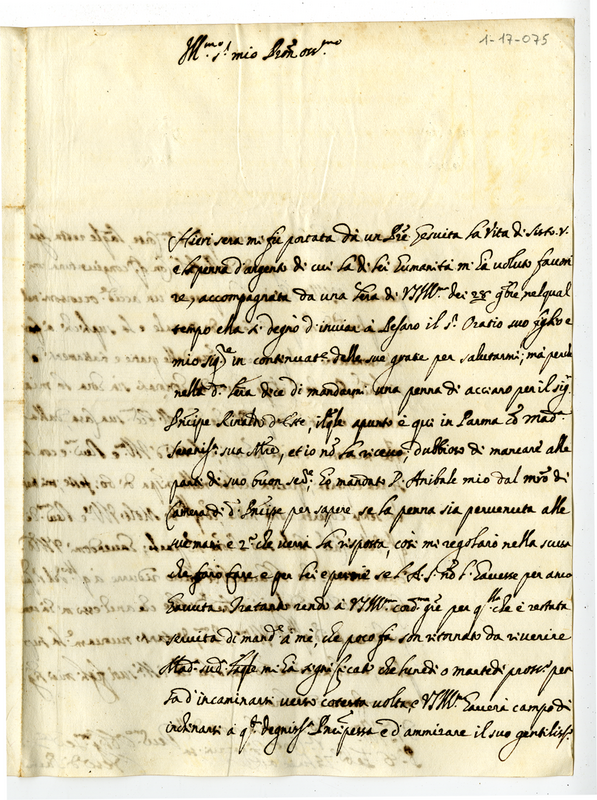 1-17-075
Ill.mo s.r mio Pron oss.mo
Hieri sera mi fu portata da un P.re Gesuita la Vita di Sisto V.
e la penna d'argento di cui la di lei Humanità mi ha voluto favori
re, accompagnata da una l'ra di V.S. Ill.ma dei 28 nel qual
tempo ella si degnò d'inviar à Pesaro il s.r Oratio suo figlio e
mio sig.re in continuat.e delle sue gratie per salutarmi, mà perche
nella d.a l'ra dice di mandarmi una penna di acciaro per il sig.
Prncipe Rinaldo d'Este, il q'le apunto è qui in Parma cō Mad.
Sereniss. sua M're, et io nō la ricevei, dubbioso di mancare alle
parti di suo buon ser.e, hò mandato D. Anibale mio dal m'ro di
Camera di d.o Prncipe per sapere se la penna sia pervenuta alle
sue mani e 2.o che verrà la risposta, così mi regolarò nella scusa
che farò fare, e per lei e per me se S. A. S. nō l'havesse per anco
havuta. Intanto rendo à V.S. Ill.ma gr'e per q'llo che è restata
servita di mand.e à me, che poco fà son ritornato da riverire
Mad. sud. la q'le mi hà significato che lunedi o martedi pross.o pen
sa d'incaminarsi verso cotesta volta, e V.S. Ill.ma haverà campo di
inchinarsi à q.ta degniss.a Prncipessa e d'ammirare il suo gentiliss.o